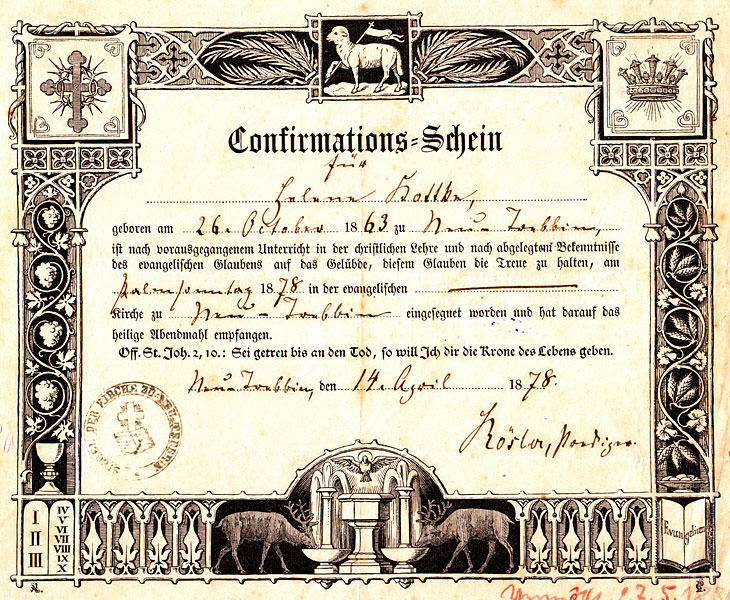 Confirmations=Schein
für
Helene Kottke,
geboren am 26. October 1863 zu Neu-Trebbin,
ist nach vorausgegangenem Unterricht in der christlichen Lehre und nach abgelegtem Bekenntnisse
des evangelischen Glaubens auf das Gelübde, diesem Glauben die Treue zu halten, am
Palmsonntag 1878 in der evangelischen
Kirche zu Neu-Trebbin eingesegnet worden und hat darauf das
heilige Abendmahl empfangen.
Off. St. Joh. 2, 10.: Sei getreu bis an den Tod, so will Ich dir die Krone des Lebens geben.
Neu-Trebbin, den 14. April 1878.
SIEGEL DER KIRCHE ZU NEU-TREBBIN
Rösler, Prediger.
I II III
IV V VI VII VIII IX X
Evangelium